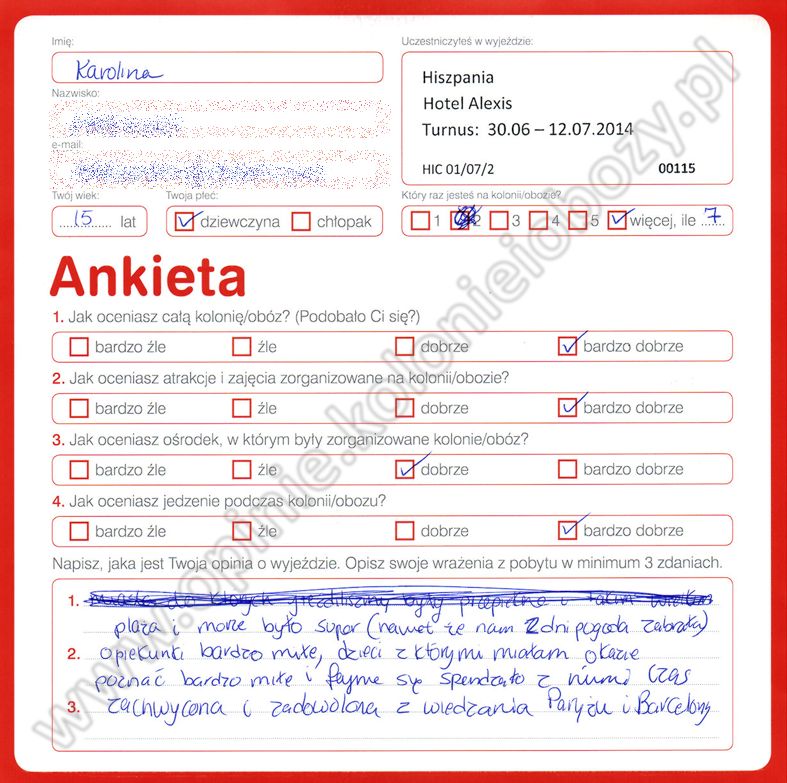 Imię:
Karolina
Uczestniczyłeś w wyjeździe:
Hiszpania
Hotel Alexis
Turnus: 30.06 – 12.07.2014
HIC 01/07/2 00115
Nazwisko:
e-mail:
Twój wiek:
15 lat
Twoja płeć:
dziewczyna chłopak
Który raz jesteś na kolonii/obozie?
1 2 3 4 5 więcej, ile 7
Ankieta
1. Jak oceniasz całą kolonię/obóz? (Podobało Ci się?)
bardzo źle źle dobrze bardzo dobrze
2. Jak oceniasz atrakcje i zajęcia zorganizowane na kolonii/obozie?
bardzo źle źle dobrze bardzo dobrze
3. Jak oceniasz ośrodek, w którym były zorganizowane kolonie/obóz?
bardzo źle źle dobrze bardzo dobrze
4. Jak oceniasz jedzenie podczas kolonii/obozu?
bardzo źle źle dobrze bardzo dobrze
Napisz, jaka jest Twoja opinia o wyjeździe. Opisz swoje wrażenia z pobytu w minimum 3 zdaniach.
1. miasta do których jeździliśmy były przepiękne i
plaża i morze było super (nawet że nam 2 dni pogoda zabrała)
2. opiekunki bardzo miłe, dzieci z którymi miałam okazie
poznać bardzo miłe i fajnie się spendzało z nimi czas
3. zachwycona i zadowolona z wiedzania Paryżu i Barcelony
www.opinie.kolonieiobozy.pl